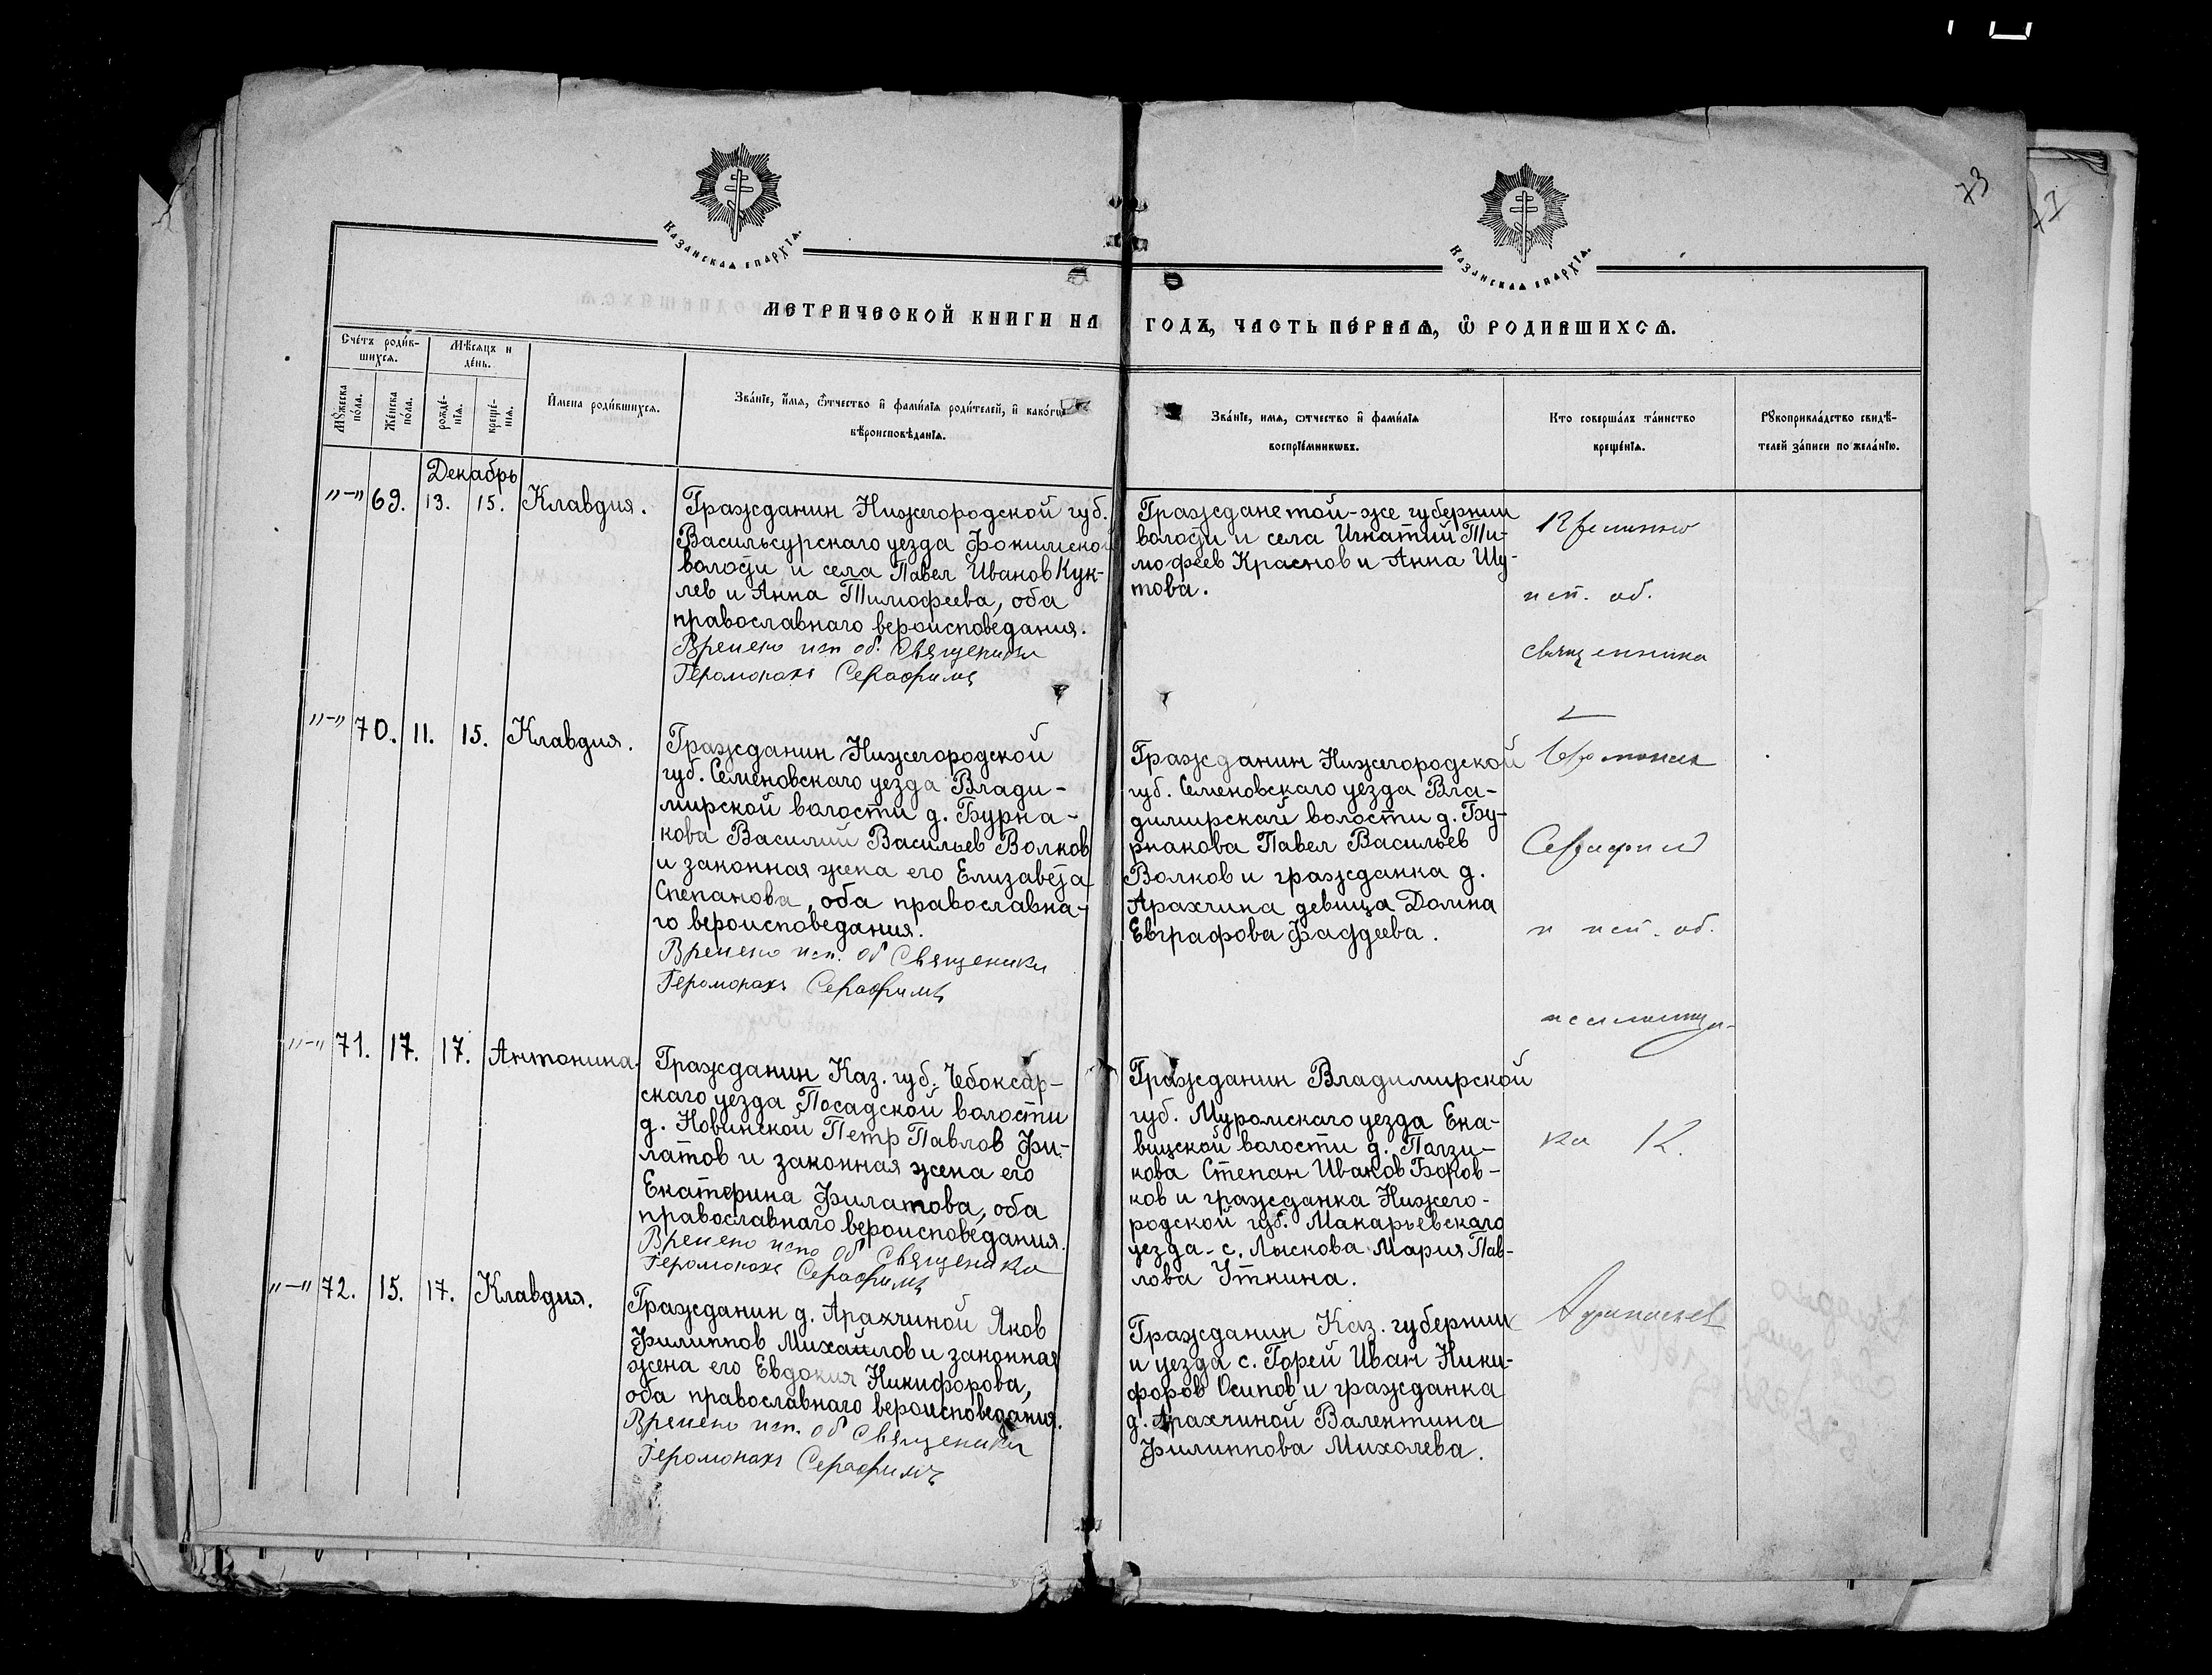 73
71
Казанская епархїа.
Казанская епархїа.
МЕТРИЧЕСКОЙ КНИГИ НА ГОДЪ, ЧАСТЬ ПЕРВАЯ, Ѿ РОДИВШИХСЯ.
Счétъ роди́в-
шихся.
Мѣсяцъ и
де́нь.
Мꙋ́жеска
по́ла.
Же́нска
по́ла.
рожде́-
нїя.
креще́-
нїя.
И҆мена роди́вшихся.
Зва́нїе, и҆́мя, ѻ҆́тчество и҆ фами́лїя роди́телей, и҆ како́гѡ
вѣроисповѣ́данїя.
Зва́нїе, имя, ѻтчество и҆ фами́лїя
воспрїе́мникѡвъ.
Кто соверша́лъ та́инство
креще́нїя.
Рꙋкоприкла́дство свидѣ́-
телей за́писи по жела́нїю.
Декабрь
"-" 69. 13. 15. Клавдия.
Гражданин Нижегородской губ.
Васильсурскаго уезда Фокинской
волости и села Павел Иванов Кук-
лев и Анна Тимофеева, оба
православнаго вероисповедания.
Времено исп об. Священика
Іеромонахъ Серафимъ
Граждане той-же губернии
волости и села Игнатий Ти-
мофеев Краснов и Анна Шу-
това.
"-" 70. 11. 15. Клавдия.
Гражданин Нижегородской
губ. Семеновскаго уезда Влади-
мирской волости д. Бурна-
кова Василий Васильев Волков
и законная жена его Елизавета
Степанова, оба православна-
го вероисповедания.
Времено исп. об Священика
Іеромонахъ Серафимъ
Гражданин Нижегородской
губ. Семеновскаго уезда Вла-
димирской волости д. Бу-
рнакова Павел Васильев
Волков и гражданка д.
Арахчина девица Домна
Евграфова Фаддеева.
"-" 71. 17. 17. Антонина.
Гражданин Каз. губ. Чебоксар-
скаго уезда Посадской волости
д. Новинской Петр Павлов Фи-
латов и законная жена его
Екатерина Филатова, оба
православнаго вероисповедания.
Времено испо об Священика
Іеромонахъ Серафимъ
Гражданин Владимирской
губ. Муромскаго уезда Ека-
вицской волости д. Ползи-
кова Степан Иванов Боров-
ков и гражданка Нижего-
родской губ. Макарьевскаго
уезда с. Лыскова Мария Пав-
лова Уткина.
"-" 72. 15. 17. Клавдия.
Гражданин д. Арахчиной Яков
Филиппов Михайлов и законная
жена его Евдокия Никифорова,
оба православнаго вероисповедания.
Времено исп. об Священика
Іеромонахъ Серафимъ
Гражданин Каз. губернии
и уезда с. Горей Иван Ники-
форов Осипов и гражданка
д. Арахчиной Валентина
Филиппова Михолева.
исп. об.
священника
Іеромонах
Серафим
и исп. об.
псаломщи-
ка К.
Афанасьев